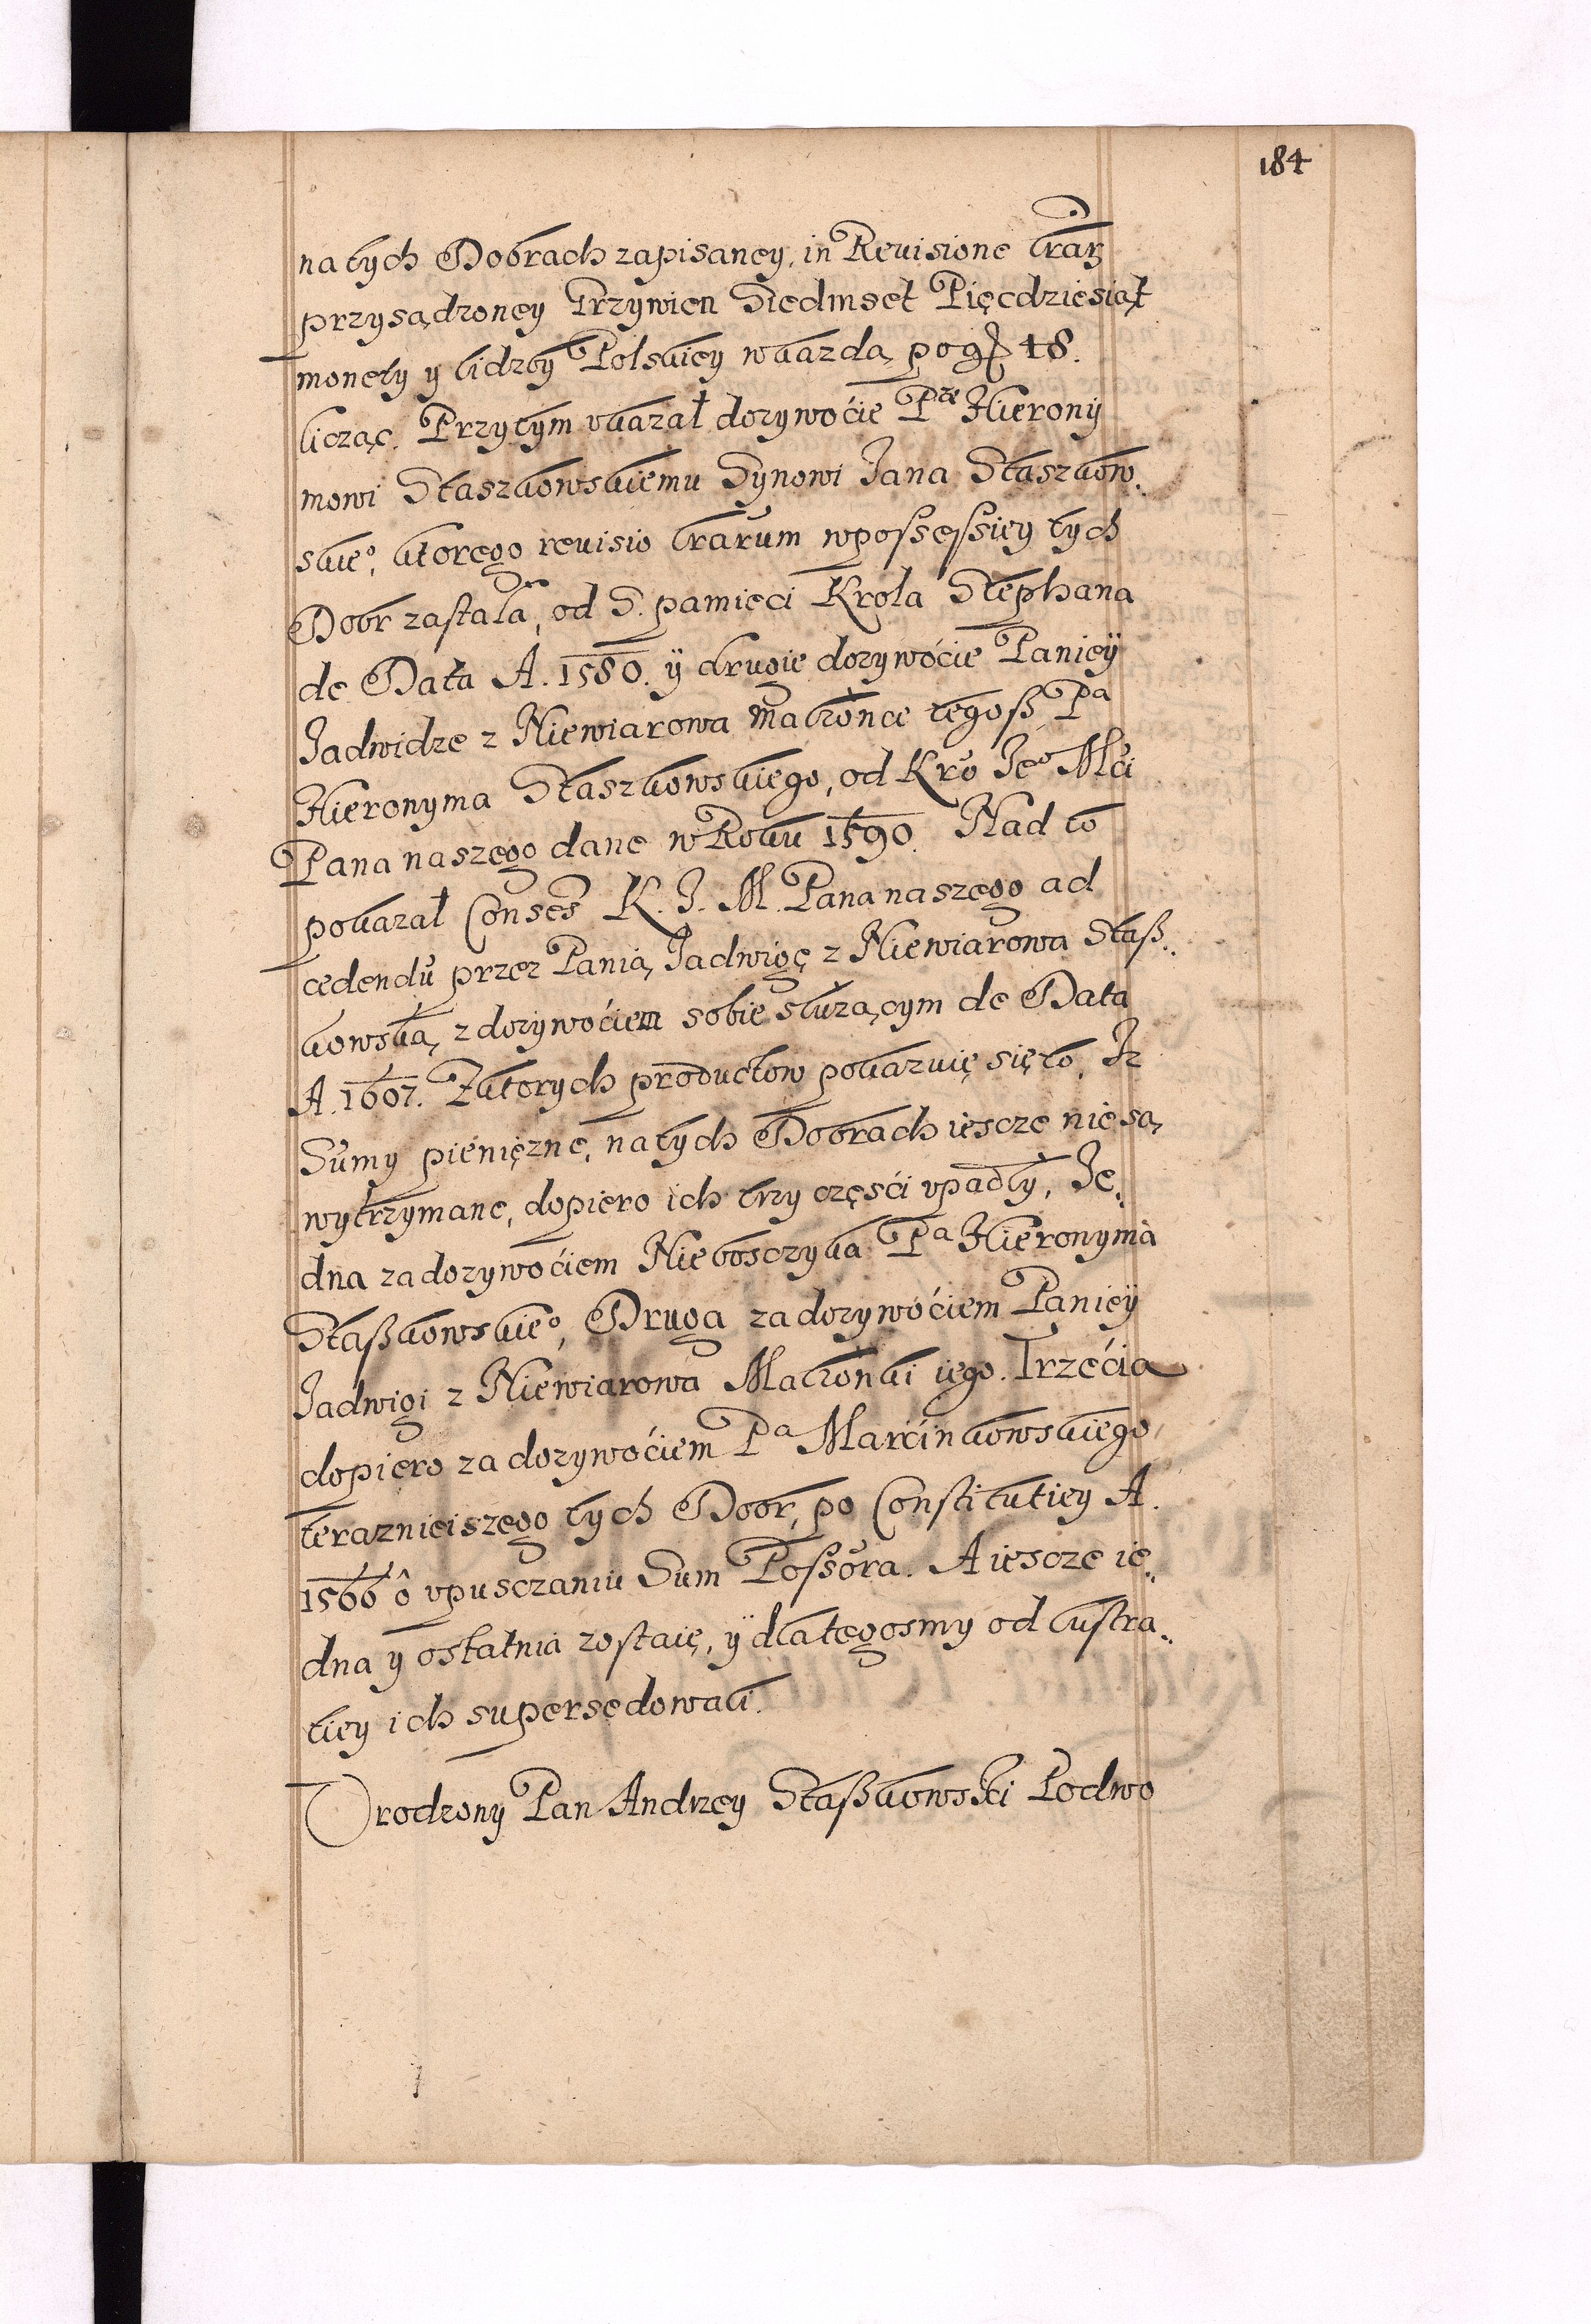 184
na tych Dobrach zapisaney, in Revisione lrar
przysądzoney Grzywien Siedmset Pięcdziesiąt
monety y lidzby Polskiey wkazdą po g 48.
licząc. Przytym vkazał dozywoćie Pᵘ Hierony
mowi Staszkowskiemu Synowi Jana Staszkow„
skieᵒ, ktorego revisio lrarum w possessiey tych
Dobr zastała, od S. pamięci Krola Stephana
de Data A. 1580. ÿ drugie dozywoćie Panieÿ
Jadwidze z Niewiarowa małzonce tegosz Pᵃ
Hieronyma Staszkowskiego, od Kro Jeᵒ Mći
Pana naszego dane w Roku 1590. Nad to
pokazał Conses K. J. M. Pana naszego ad
cedendū przez Panią Jadwigę z Niewiarowa Staß„
kowską, z dozywoćiem sobie słuząçym de Data
A. 1607. Z ktorych productow pokazuię się to, Iz
Sumy pieniężne, na tych Dobrach iescze nie są
wytrzymane, dopiero ich trzy częśći vpadły, Je„
dna za dozywoćiem Niebosczyka Pᵃ Hieronyma
Staßkowskieᵒ, Druga za dozywoćiem Panieÿ
Jadwigi z Niewiarowa Małzonki iego. Trzećia
dopiero za dozywoćiem Pᵃ Marćinkowskiego
teraznieiszego tych Dobr, po Constitutiey A.
1566 ô vpusczaniu Sum Possora. A iescze ie„
dna ÿ ostatnia zostaię, ÿ dlategosmy od lustra„
tiey ich supersedowali.
Vrodzony Pan Andrzey Staßkowski Podwo